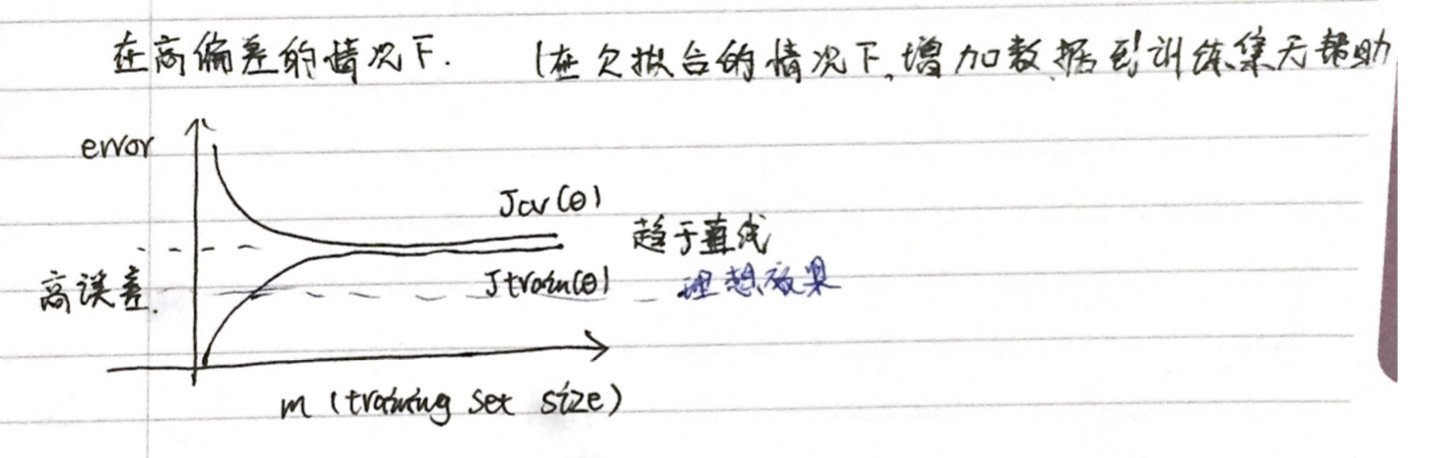 在高偏差的情况下. (在欠拟合的情况下,增加数据到训练集无帮助
error
Jcv(θ)
趋于直线
高误差.
Jtrain(θ)
理想效果
m (training set size)